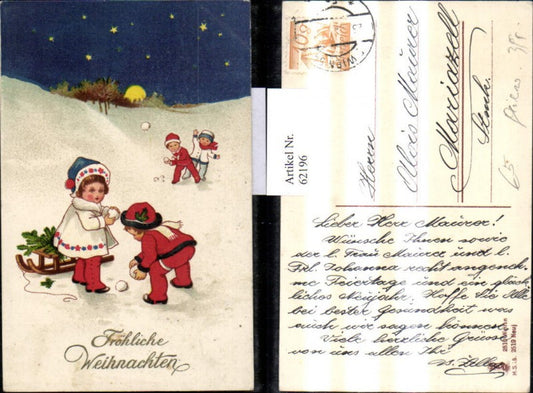 Fröhliche
Weihnachten
Artikel Nr.
62196
Herrn
Alois Maurer
Mariazell
Stmk.
Lieber Herr Maurer!
Wünsche Ihnen sowie
der l. Frau Maurer und l.
Frl. Johanna recht angeneh-
me Feiertage und ein glück
liches Neujahr. Hoffe Sie Alle
bei bester Gesundheit was
auch wir sagen können.
Viele herzliche Grüsse
von uns allen Ihr